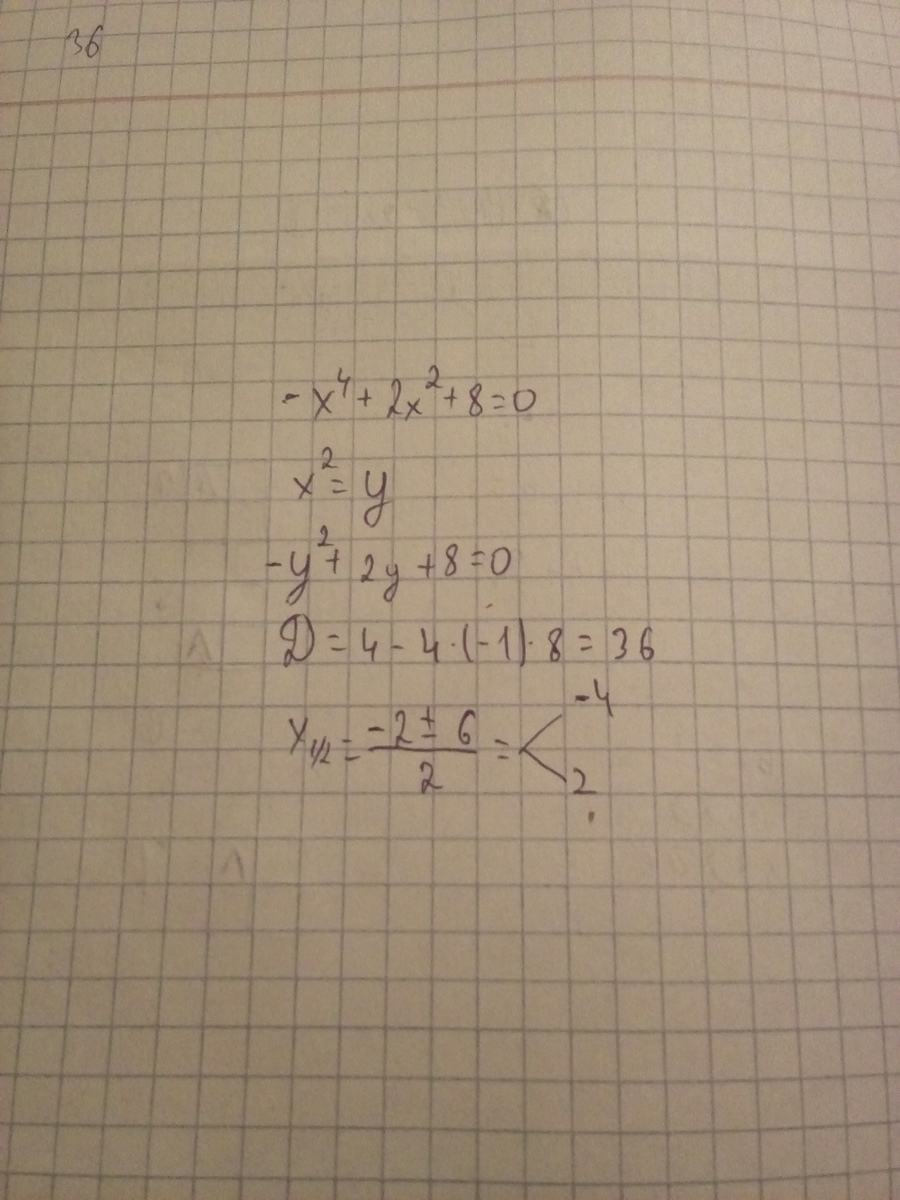 36
-x⁴ + 2x² + 8 = 0
x² = y
-y² + 2y + 8 = 0
D = 4 - 4·(-1)·8 = 36
x₁/₂ = (-2 ± 6)/2 = < -4
2